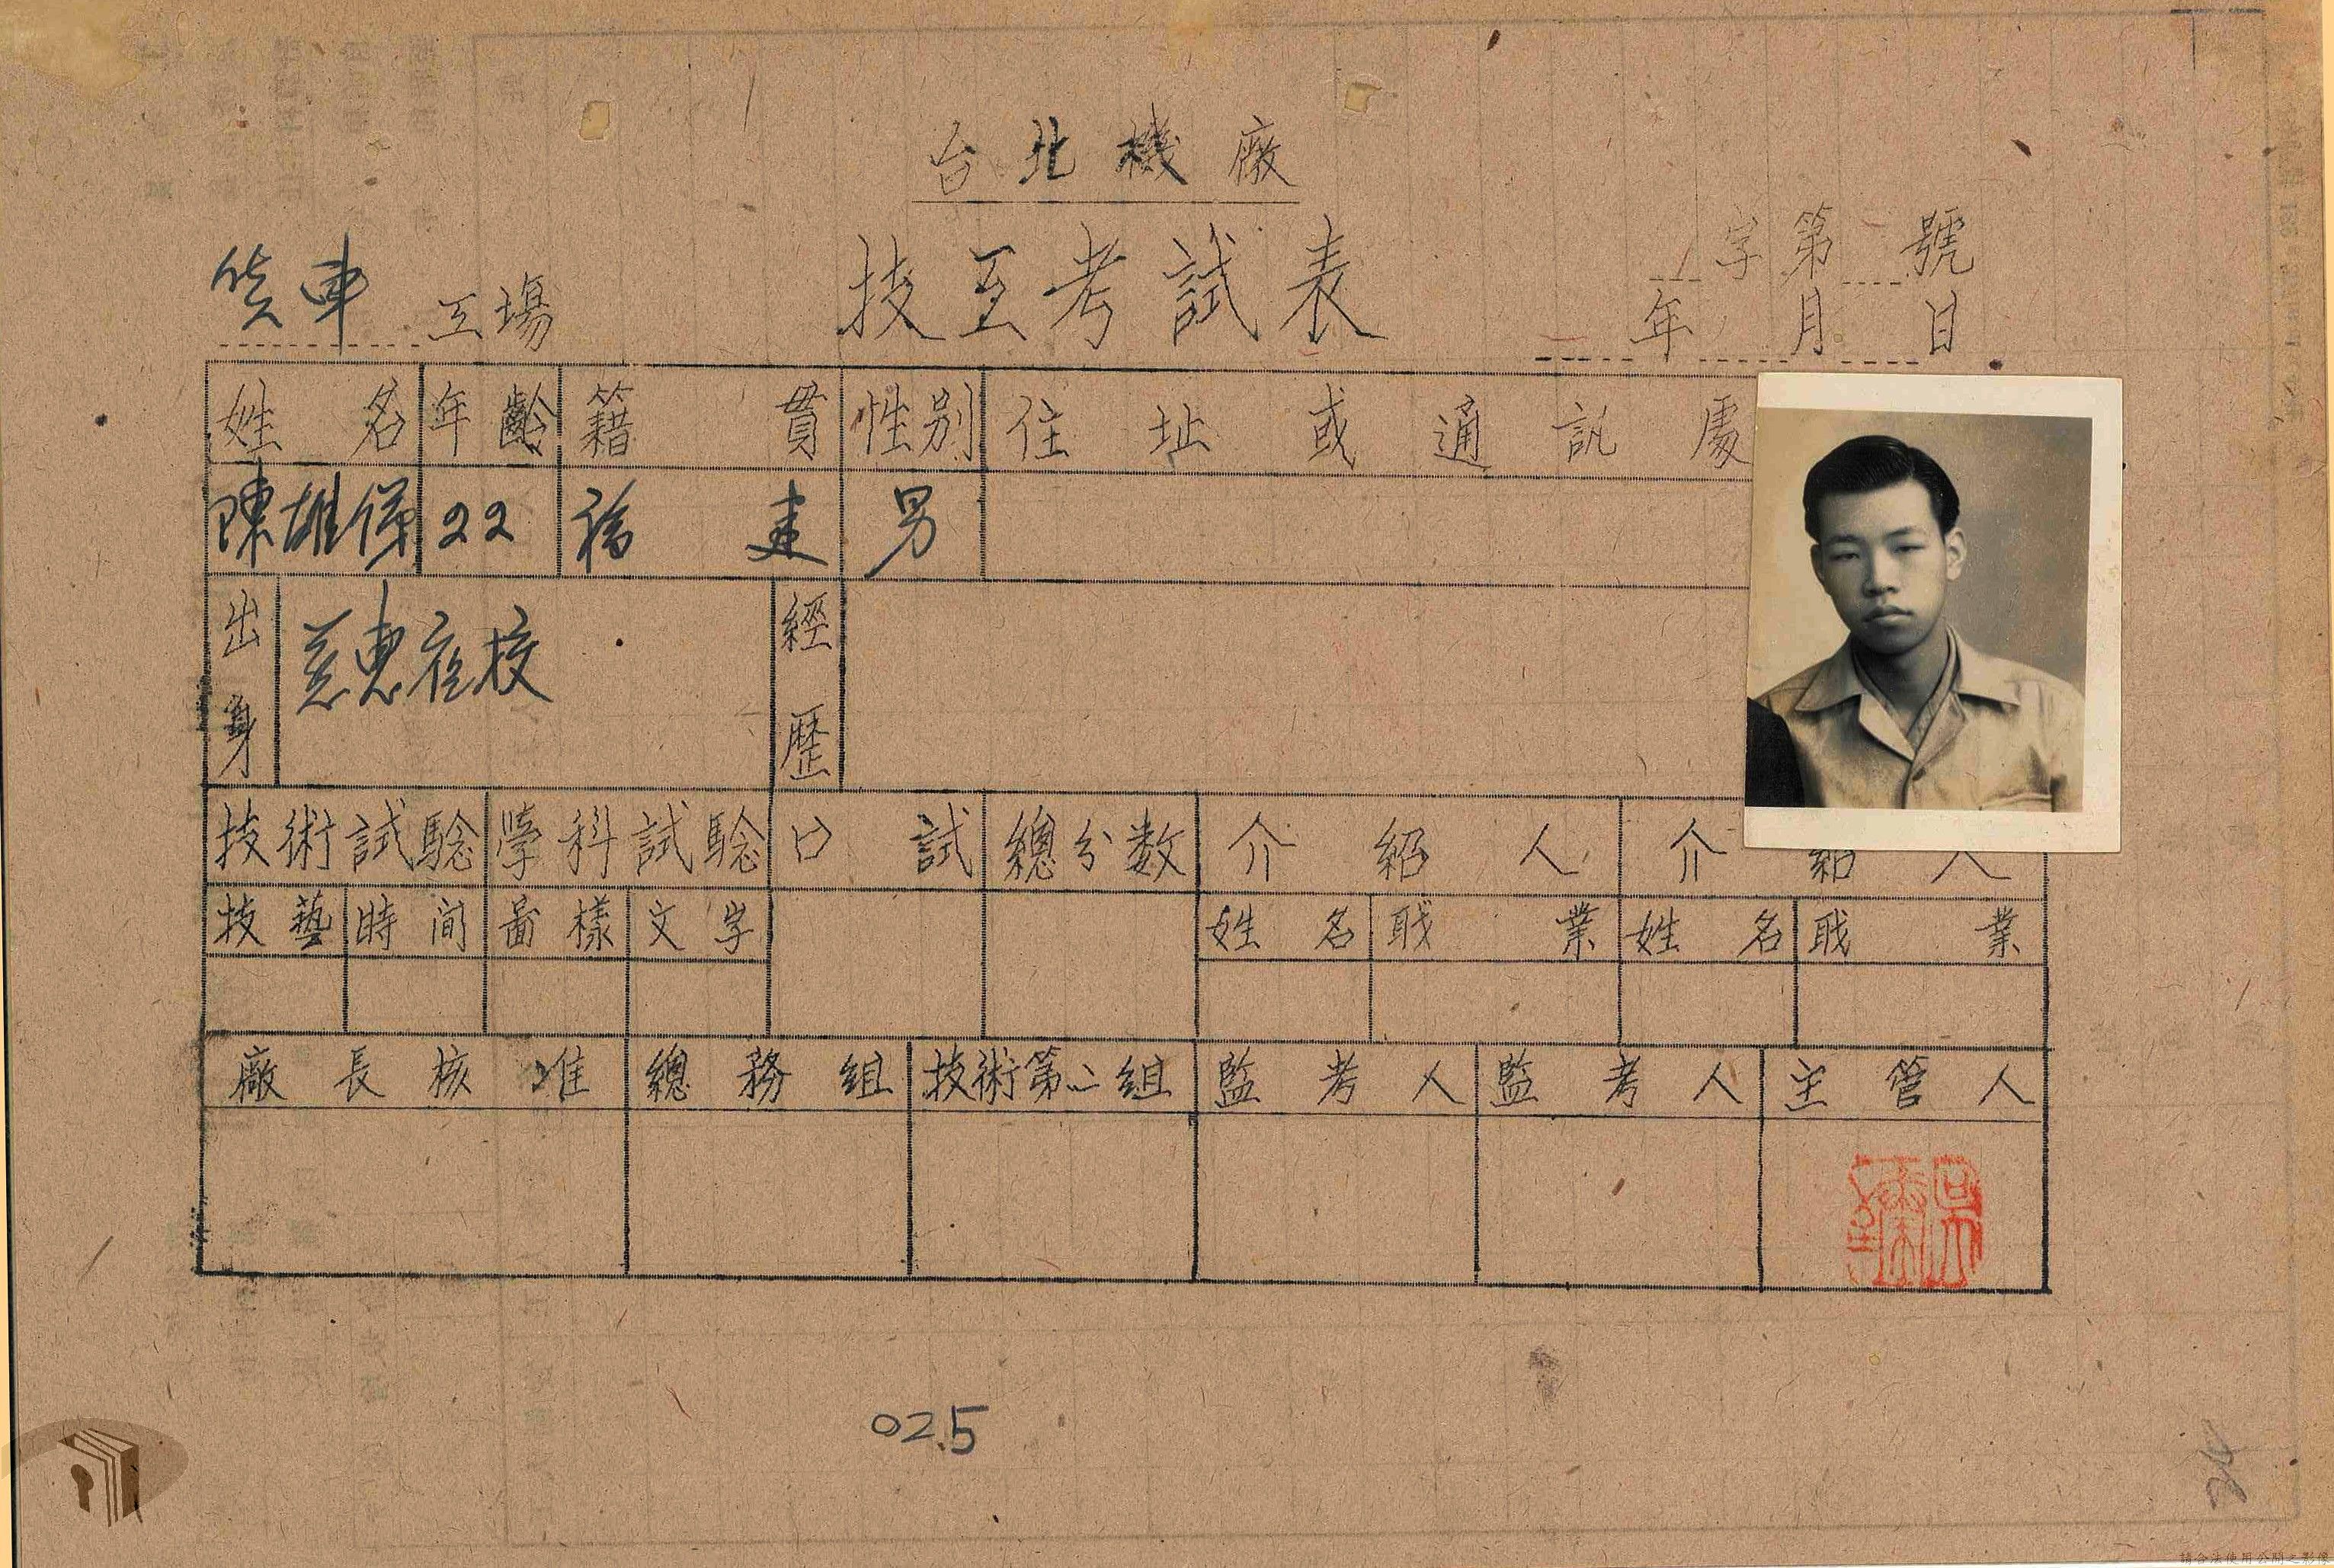 台北機廠
技工考試表
字第 號
年 月 日
货車 工場
姓名 年齡 籍貫 性別 住址或通訊處
陳雄偉 22 福建 男
出身 慈惠夜校 經歷
技術試驗 學科試驗 口試 總分数 介紹人 介紹人
技藝 時間 圖樣 文字 姓名 職業 姓名 職業
廠長核准 總務組 技術第二組 監考人 監考人 主管人
025
請合法使用公開之影像